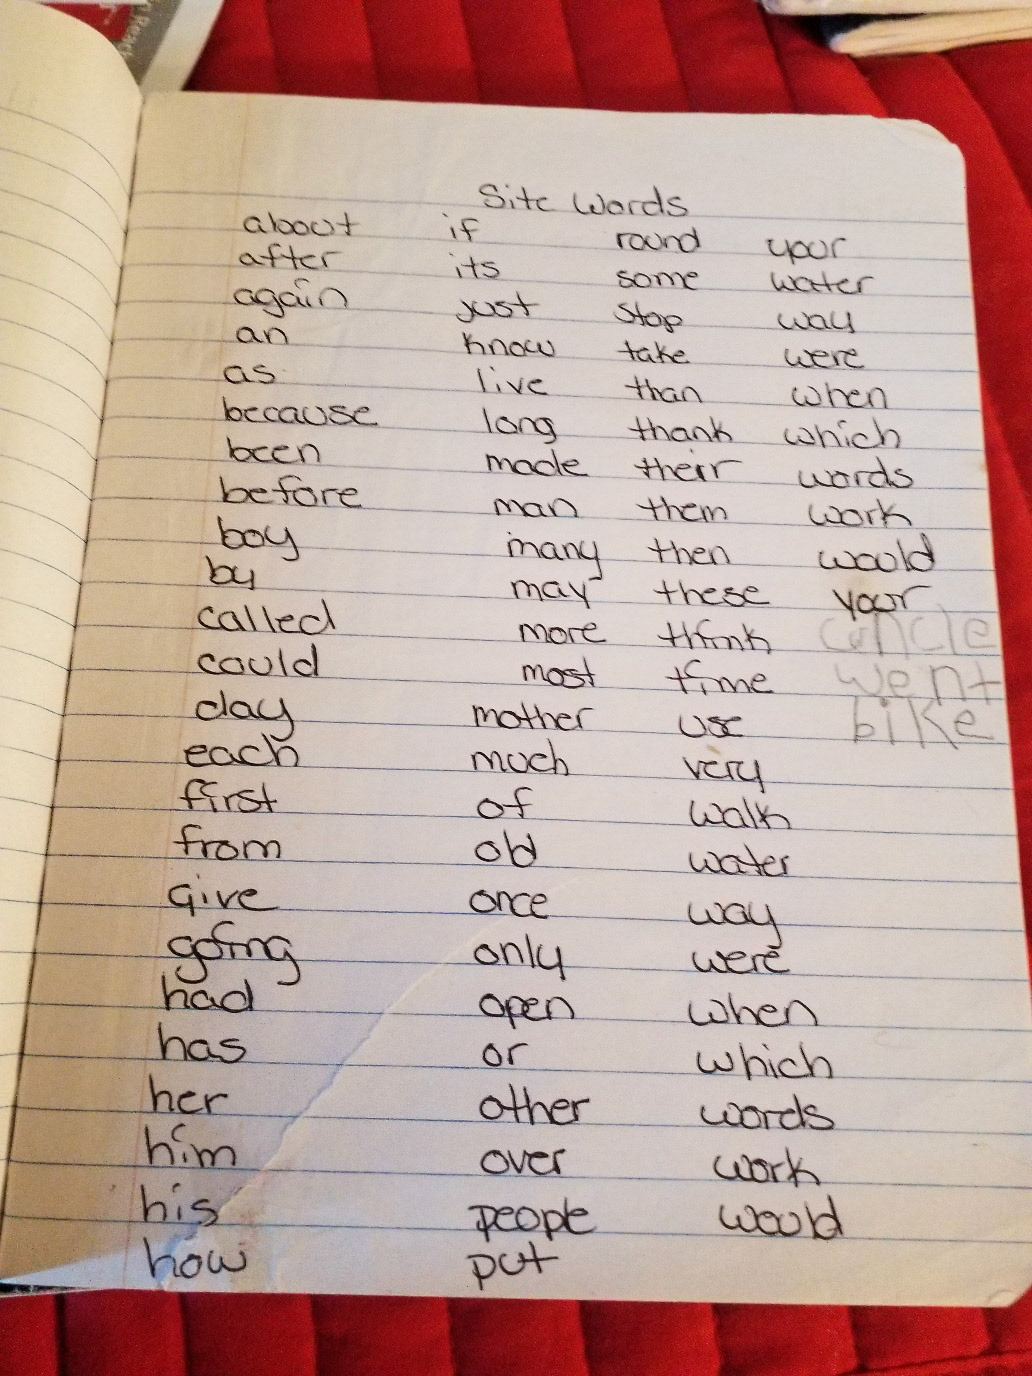 Site Words
about
after
again
an
as
because
been
before
boy
by
called
could
day
each
first
from
give
going
had
has
her
him
his
how
if
its
just
know
live
long
made
man
many
may
more
most
mother
much
of
old
once
only
open
or
other
over
people
put
round
some
stop
take
than
thank
their
them
then
these
think
time
use
very
walk
water
way
were
when
which
words
work
would
your
water
way
were
when
which
words
work
would
your
went
bike